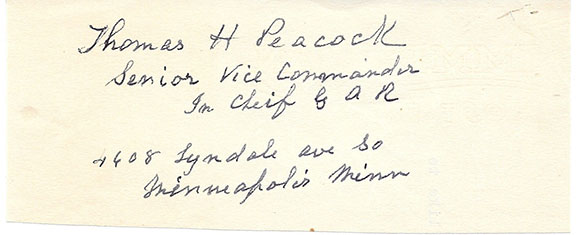 Thomas H Peacock
Senior Vice Commander
In Cheif G A R
4608 Lyndale ave So
Minneapolis Minn